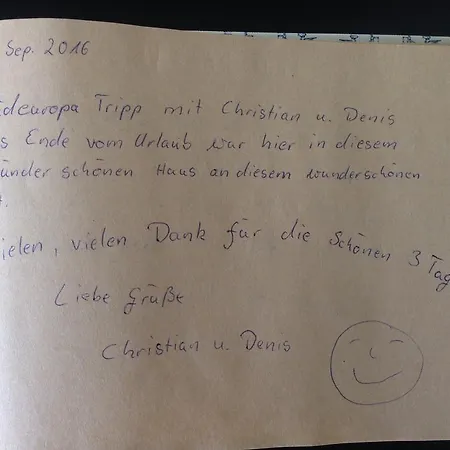 Sep. 2016
deuropa Tripp mit Christian u. Denis
s Ende vom Urlaub war hier in diesem
ünder schönen Haus an diesem wunderschönen
t.
ielen, vielen Dank für die schönen 3 Tag
Liebe Grüße
Christian u. Denis